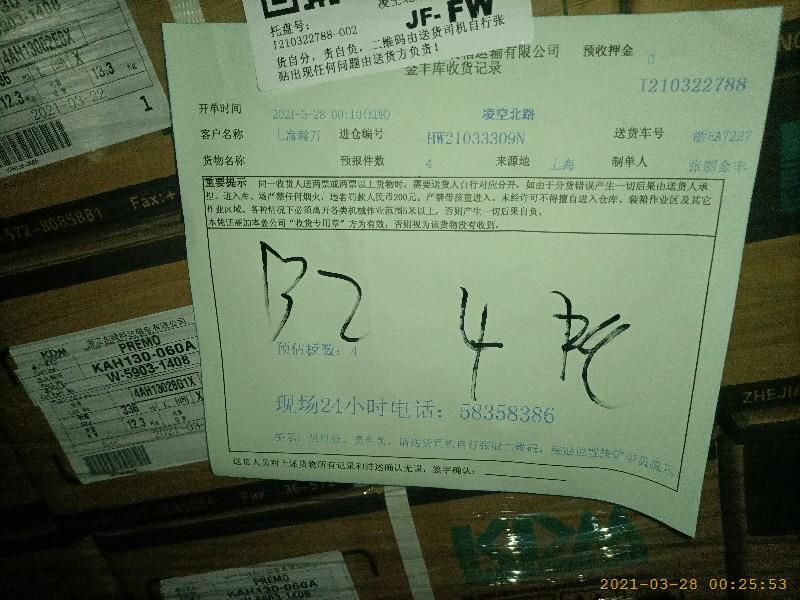 托盘号:
JF-FW
I210322788-002
货自分,责自负,二维码由送货司机自行张
贴出现任何问题由送货方负责!
运输有限公司
金丰库收货记录
预收押金 0
I210322788
开单时间 2021-3-28 00:10(KDR) 凌空北路
客户名称 上海瀚万 进仓编号 HW21033309N 送货车号 浙EA7227
货物名称 预报件数 4 来源地 上海 制单人 张丽金丰
重要提示 同一收货人送两票或两票以上货物时,需要送货人自行对应分开,如由于分货错误产生一切后果由送货人承
担。进入库、场严禁任何烟火,违者罚款人民币200元。严禁带孩童进入,未经许可不得擅自进入仓库、装箱作业区及其它
作业区域。各种情况下必须离开各类机械作业范围5米以上,否则产生一切后果自负。
本凭证需加本盖公司“收货专用章”方为有效,否则视为该货物没有收到。
B2 4
预估板数: 4
现场24小时电话: 58358386
提示:货自分,责自负,请送货司机自行张贴二维码,张贴位置按
送货人员对上述货物所有记录和描述确认无误,签字确认:
4AH1302BDX
336
12.3 Kg
13.3
2021-03-22
1
572-8085881 Fax:+
KDM
PREMO
KAH130-060A
W-5903-1408
4AH1302BG1X
336
12.3 Kg
2021-03
Fax
ZHEJIA
KDM
PREMO
KAH130-060A
W-5903-1408
2021-03-28 00:25:53